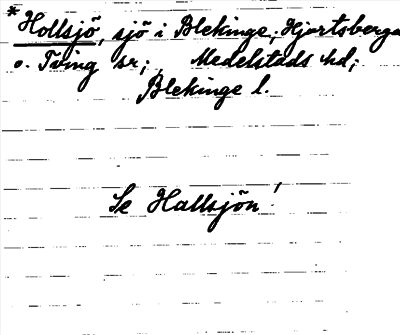 *Hollsjö, sjö i Blekinge; Hjortsberga
o. Tving sr; Medelstads hd;
Blekinge l.
Se Hallsjön!